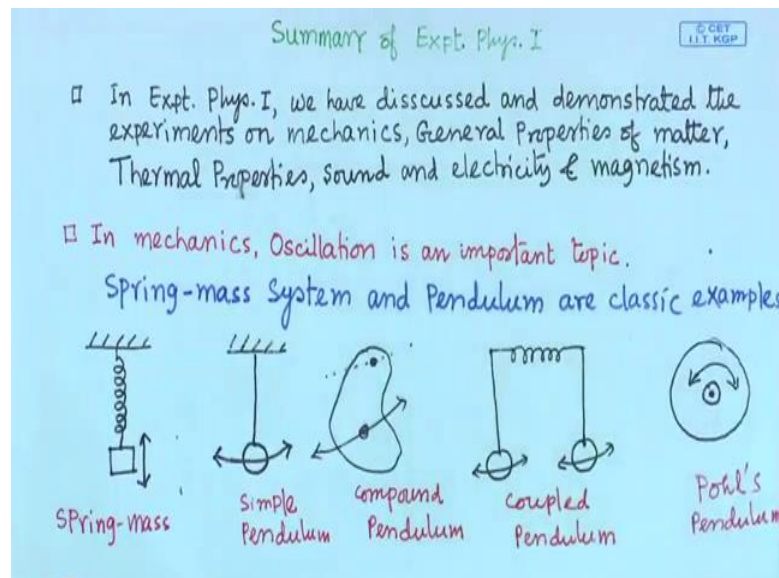 Summary of Expt. Phys. I
© CET
I.I.T. KGP
□ In Expt. Phys. I, we have disscussed and demonstrated the
experiments on mechanics, General Properties of matter,
Thermal Properties, Sound and electricity & magnetism.
□ In mechanics, Oscillation is an important topic.
Spring-mass System and Pendulum are classic examples
Spring-mass
Simple
Pendulum
Compound
Pendulum
Coupled
Pendulum
Pohl's
Pendulum